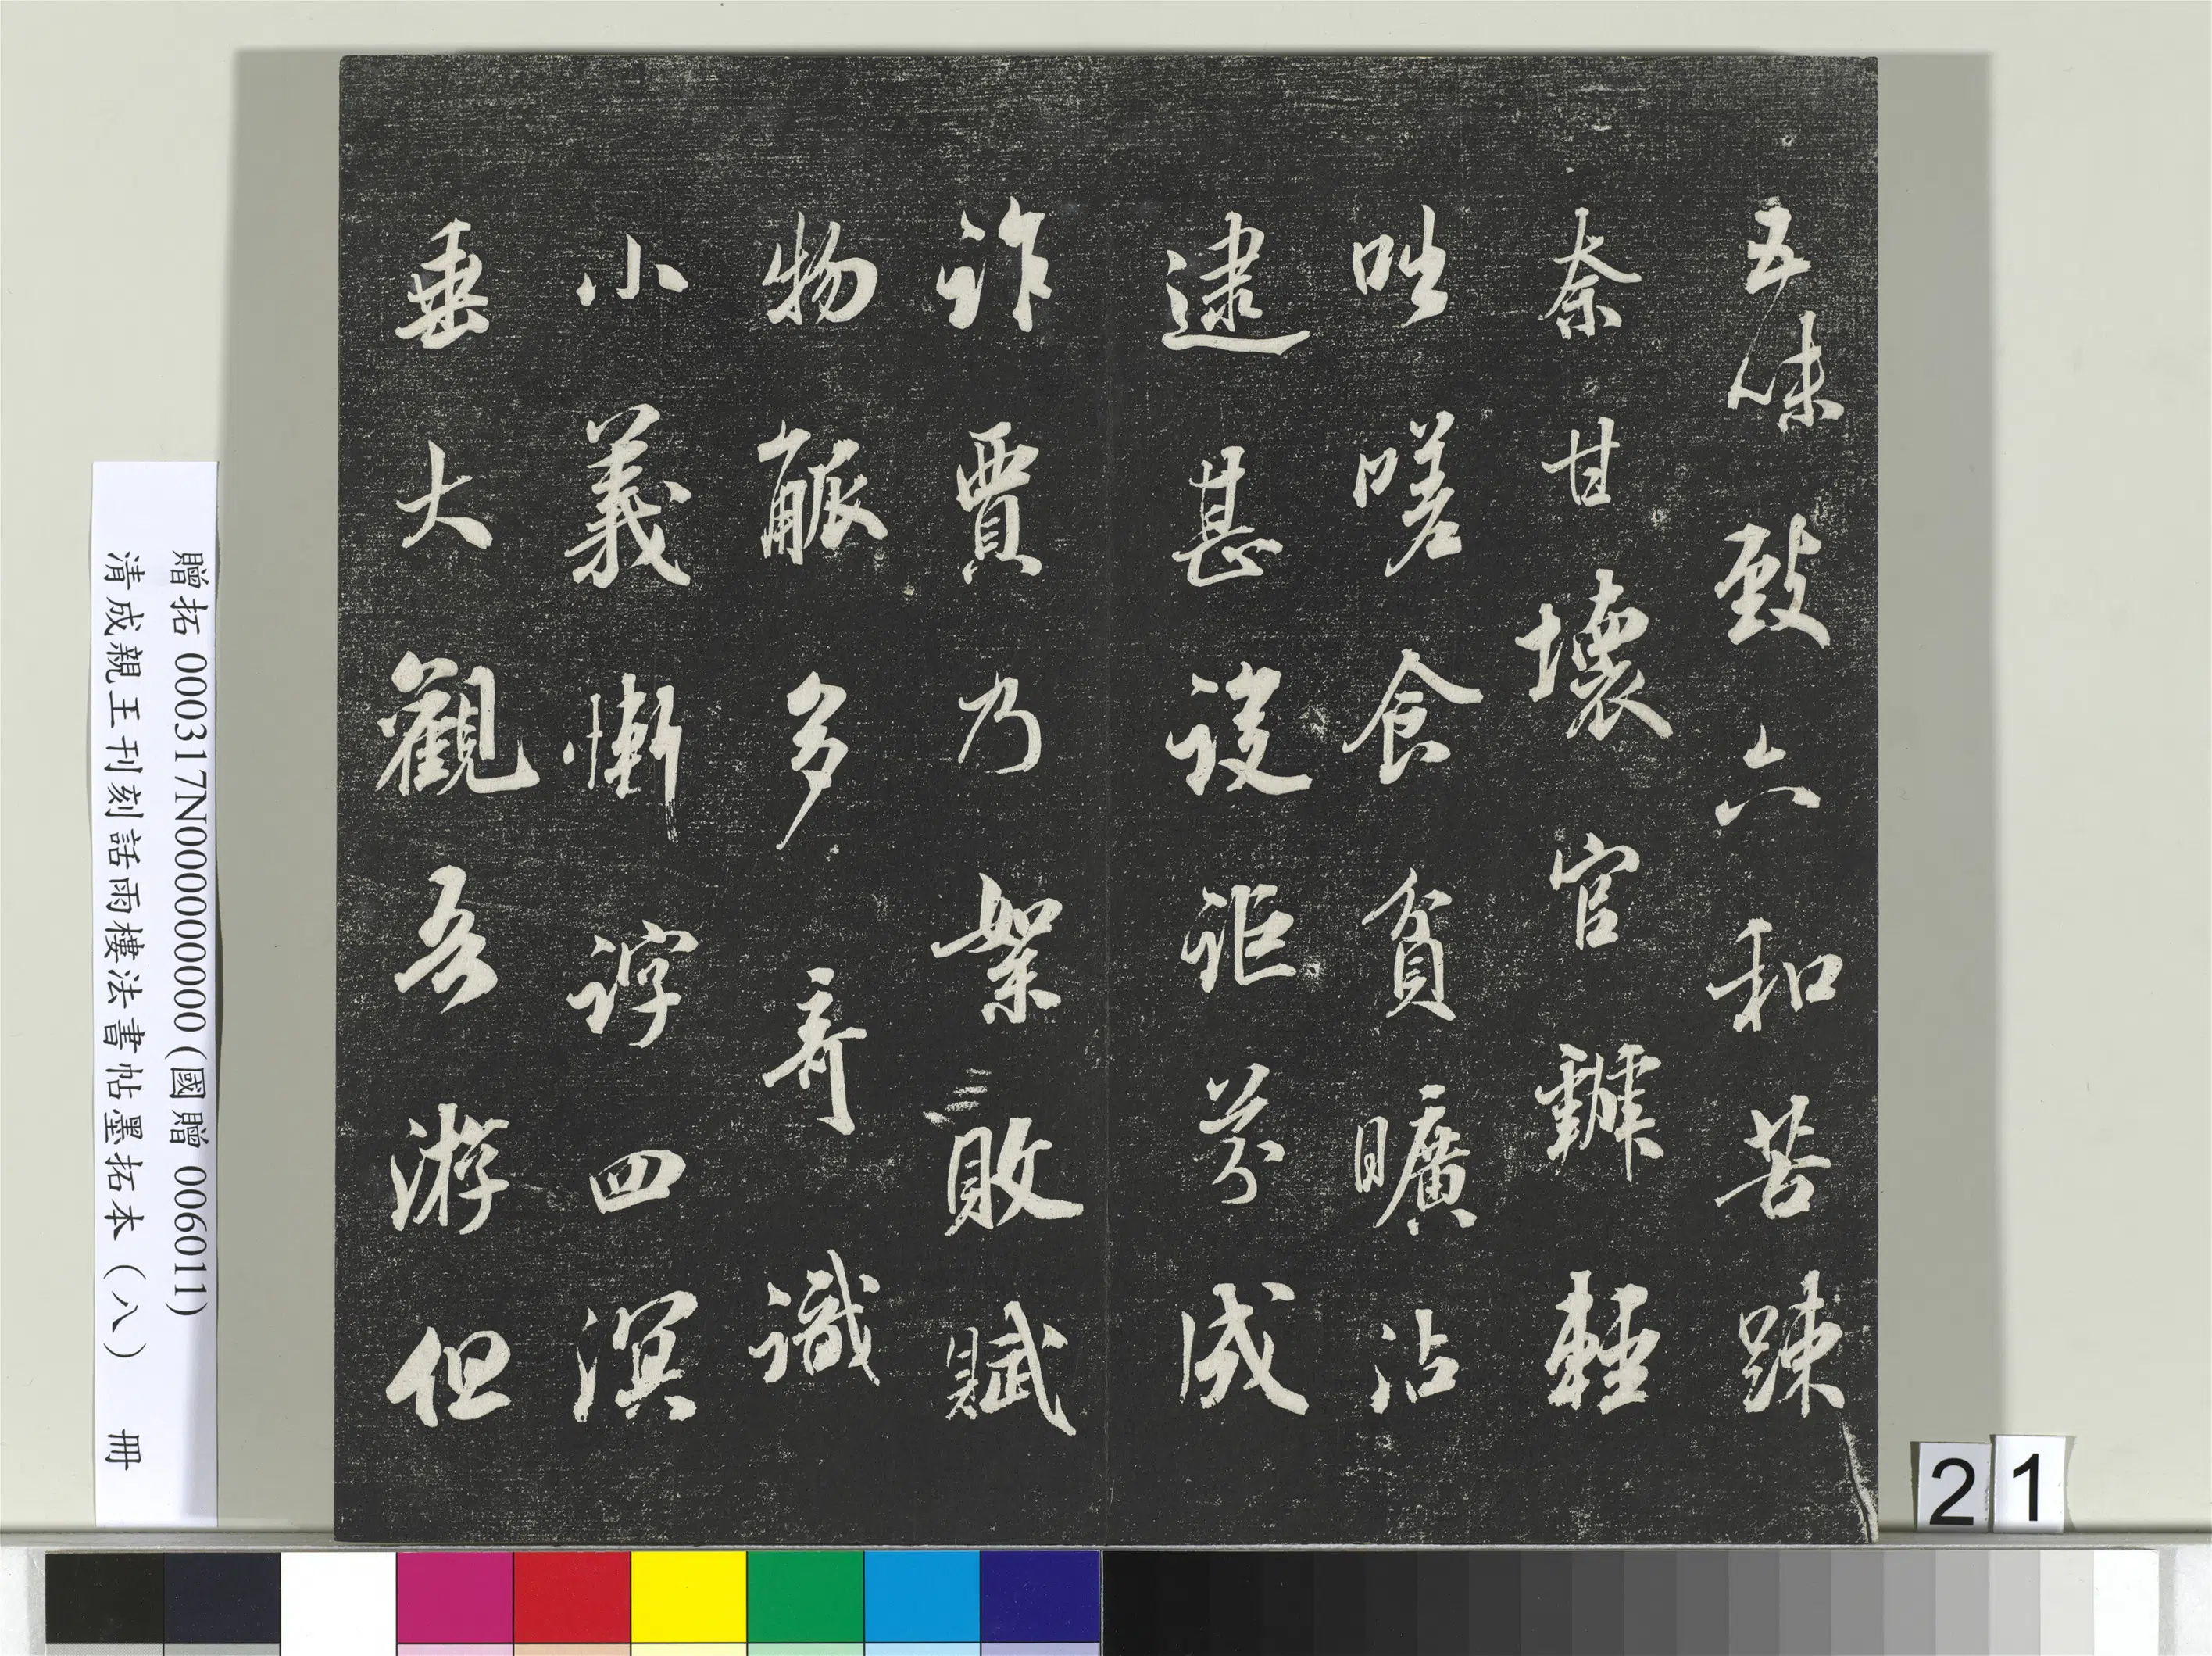 五味致六和苦踈
奈甘壞官
咄嗟食貧曠沾
逮甚詎成
詐賈乃絮敗賦
物多奇識
小義慚諄四溟
垂大觀吾游但
贈拓 000317N000000000 (國贈 006011)
清成親王刊刻話雨樓法書帖墨拓本（八） 冊
21